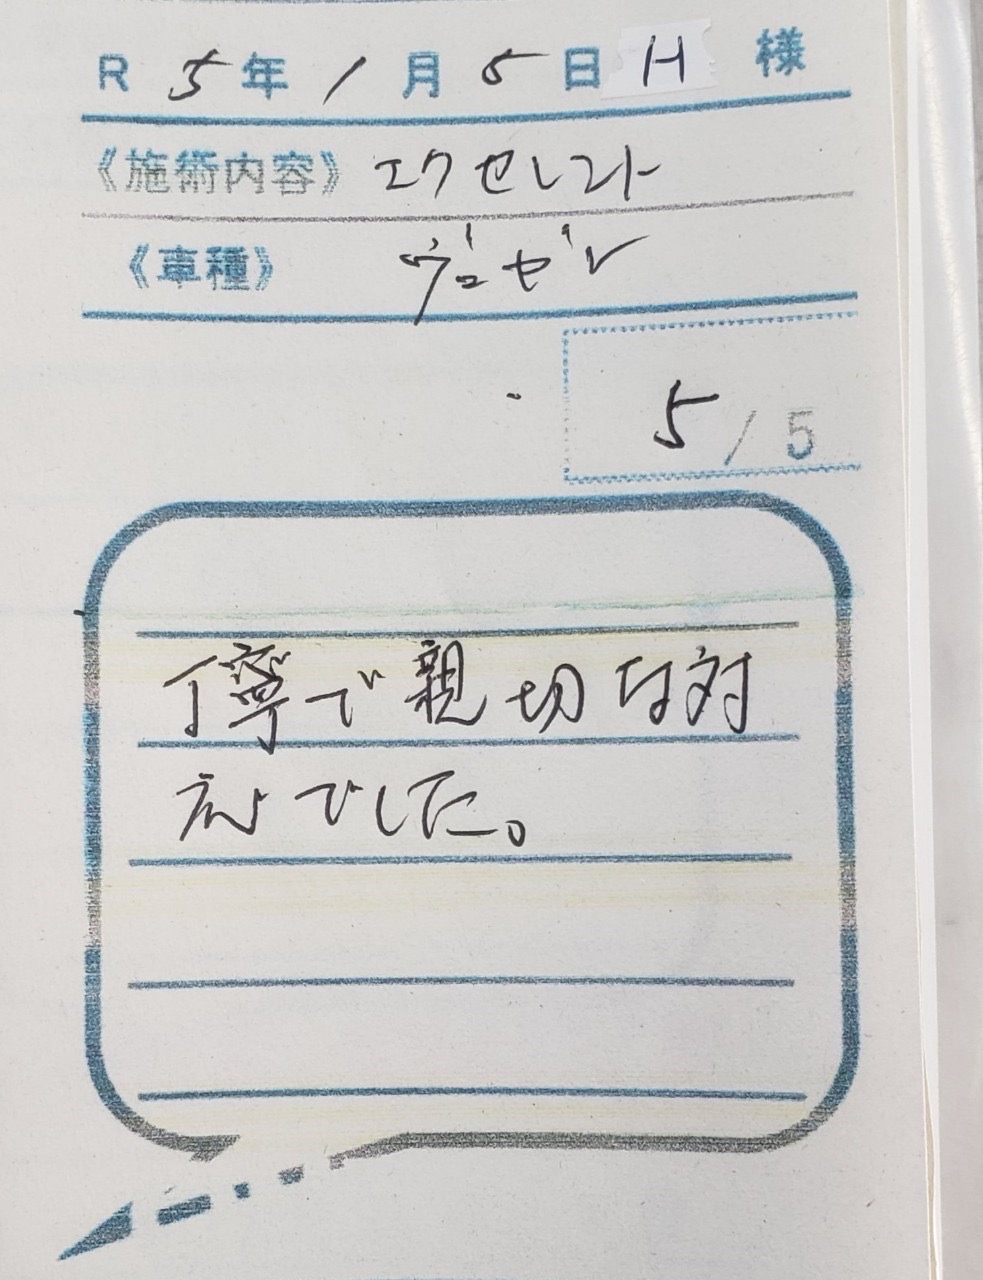 R 5年 1月 5日 H 様
《施術内容》 エクセレント
《車種》 ヴェゼル
5/5
丁寧で親切な対
応でした。